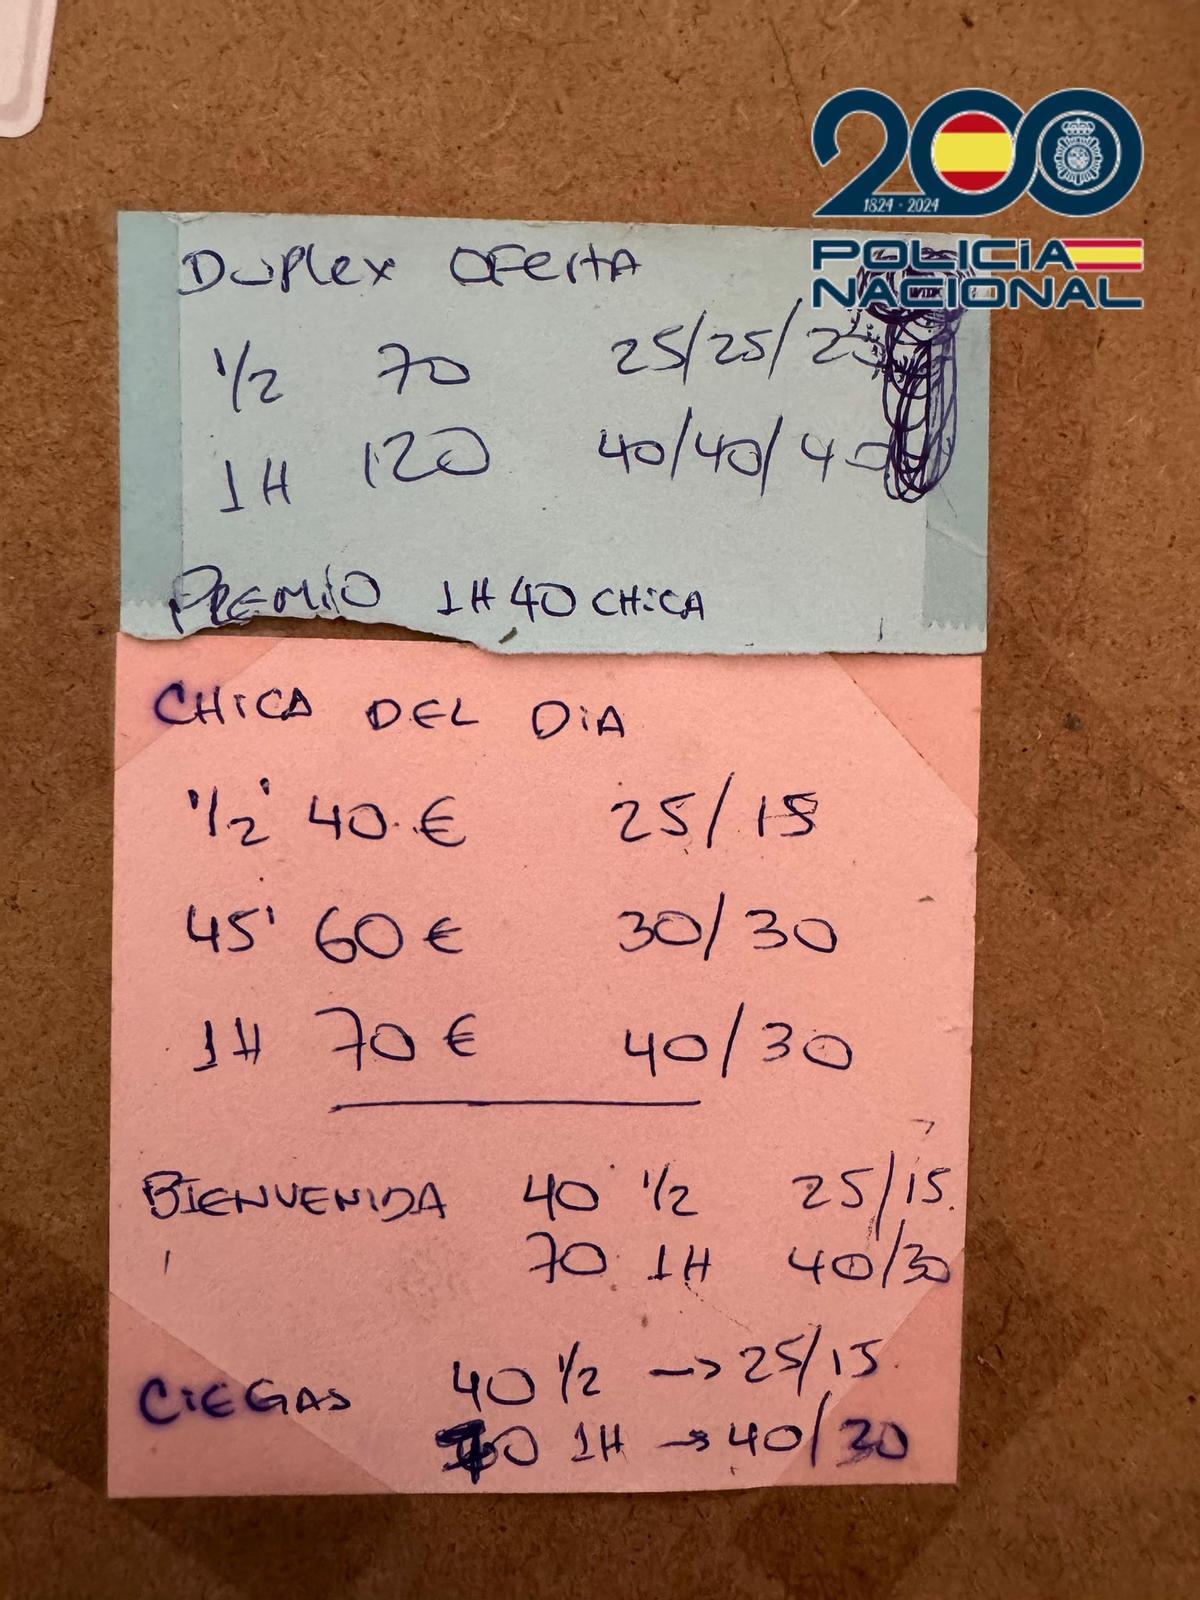 200
1824 - 2024
POLICIA
NACIONAL
DUPLEX OFERTA
1/2 70 25/25/25
1H 120 40/40/40
PREMIO 1H 40 CHICA
CHICA DEL DIA
1/2' 40 € 25/15
45' 60 € 30/30
1H 70 € 40/30
BIENVENIDA 40 1/2 25/15
70 1H 40/30
CIEGAS 40 1/2 -> 25/15
70 1H -> 40/30